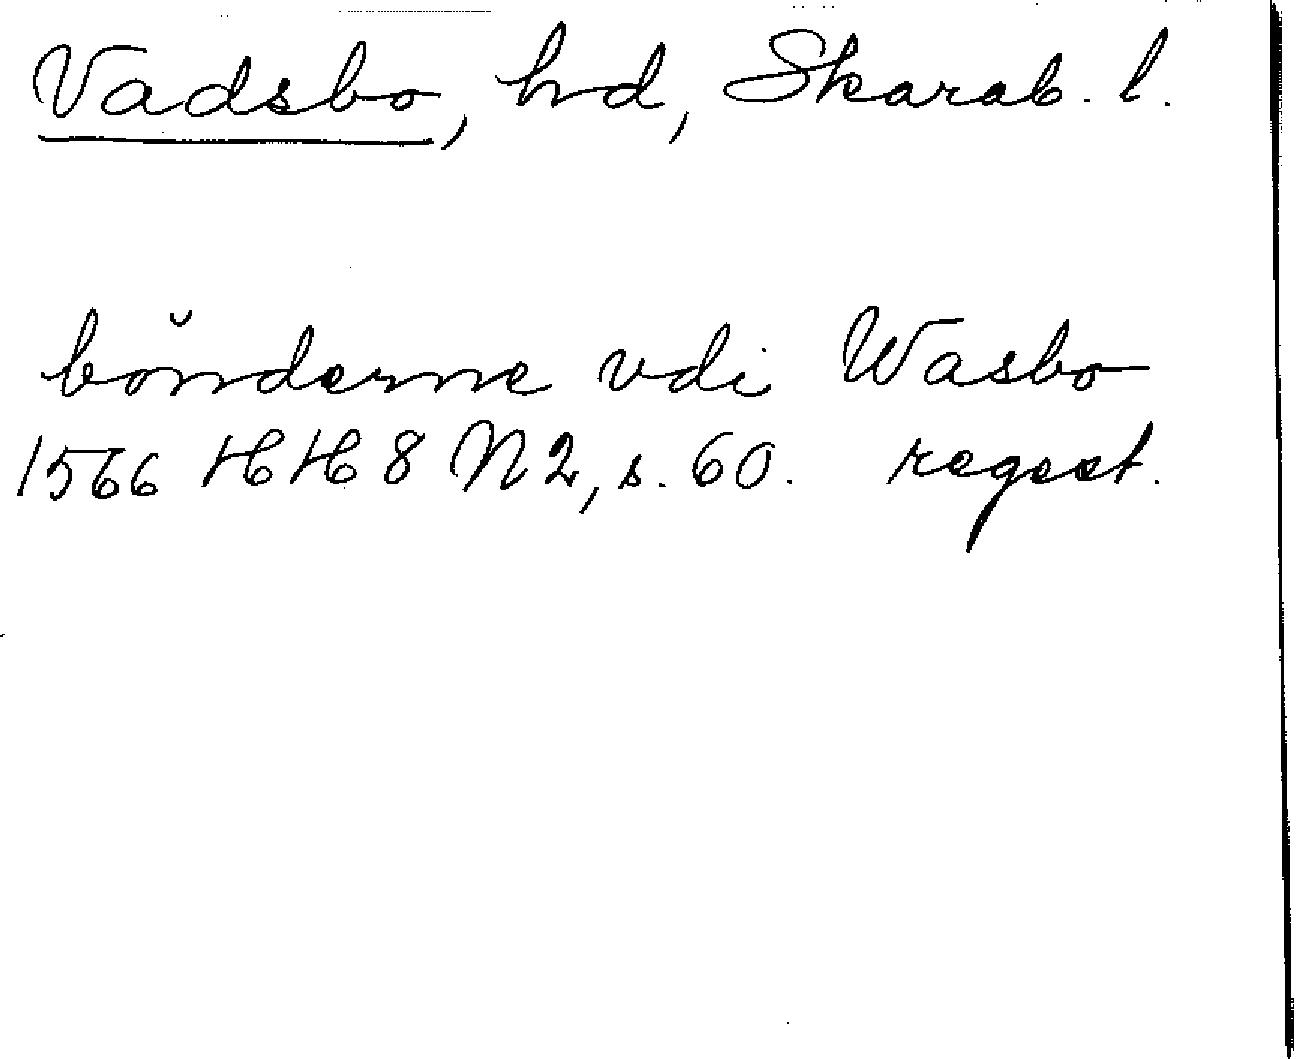 Vadsbo, hd, Skarab. l.
bönderne vdi Wasbo
1566 HH 8 N 2, s. 60. regest.